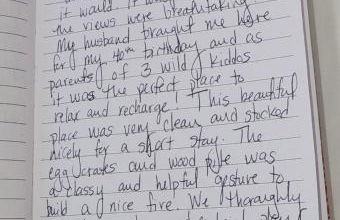 it would. It was
the views were breathtaking
My husband braught me here
for my 40th birthday and as
parents of 3 wild kiddos
it was the perfect place to
relax and recharge! This beautiful
place was very clean and stocked
nicely for a short stay. The
egg crates and wood pile was
a classy and helpful gesture to
build a nice fire. We thoroughly